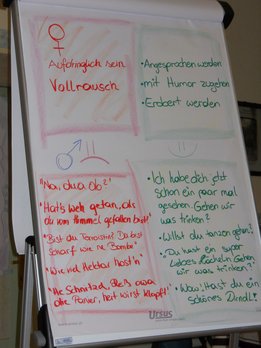 ♀
Aufdringlich sein
Vollrausch
• Angesprochen werden
• mit Humor zugehen
• Erobert werden
♂
"Na, du a do?"
"Hat's weh getan, als
du vom Himmel gefallen bist?"
"Bist du Terroristin? Du bist
scharf wie ne Bombe"
"Wie viel Hektar host'n"
• Ich habe dich jetzt
schon ein paar mal
gesehen. Gehen wir
was trinken?
• Willst du tanzen gehen?
• Du hast ein super
liebes Lächeln. Gehen
wir was trinken?
• Wow! Hast du ein
schönes Dirndl!
Ursus